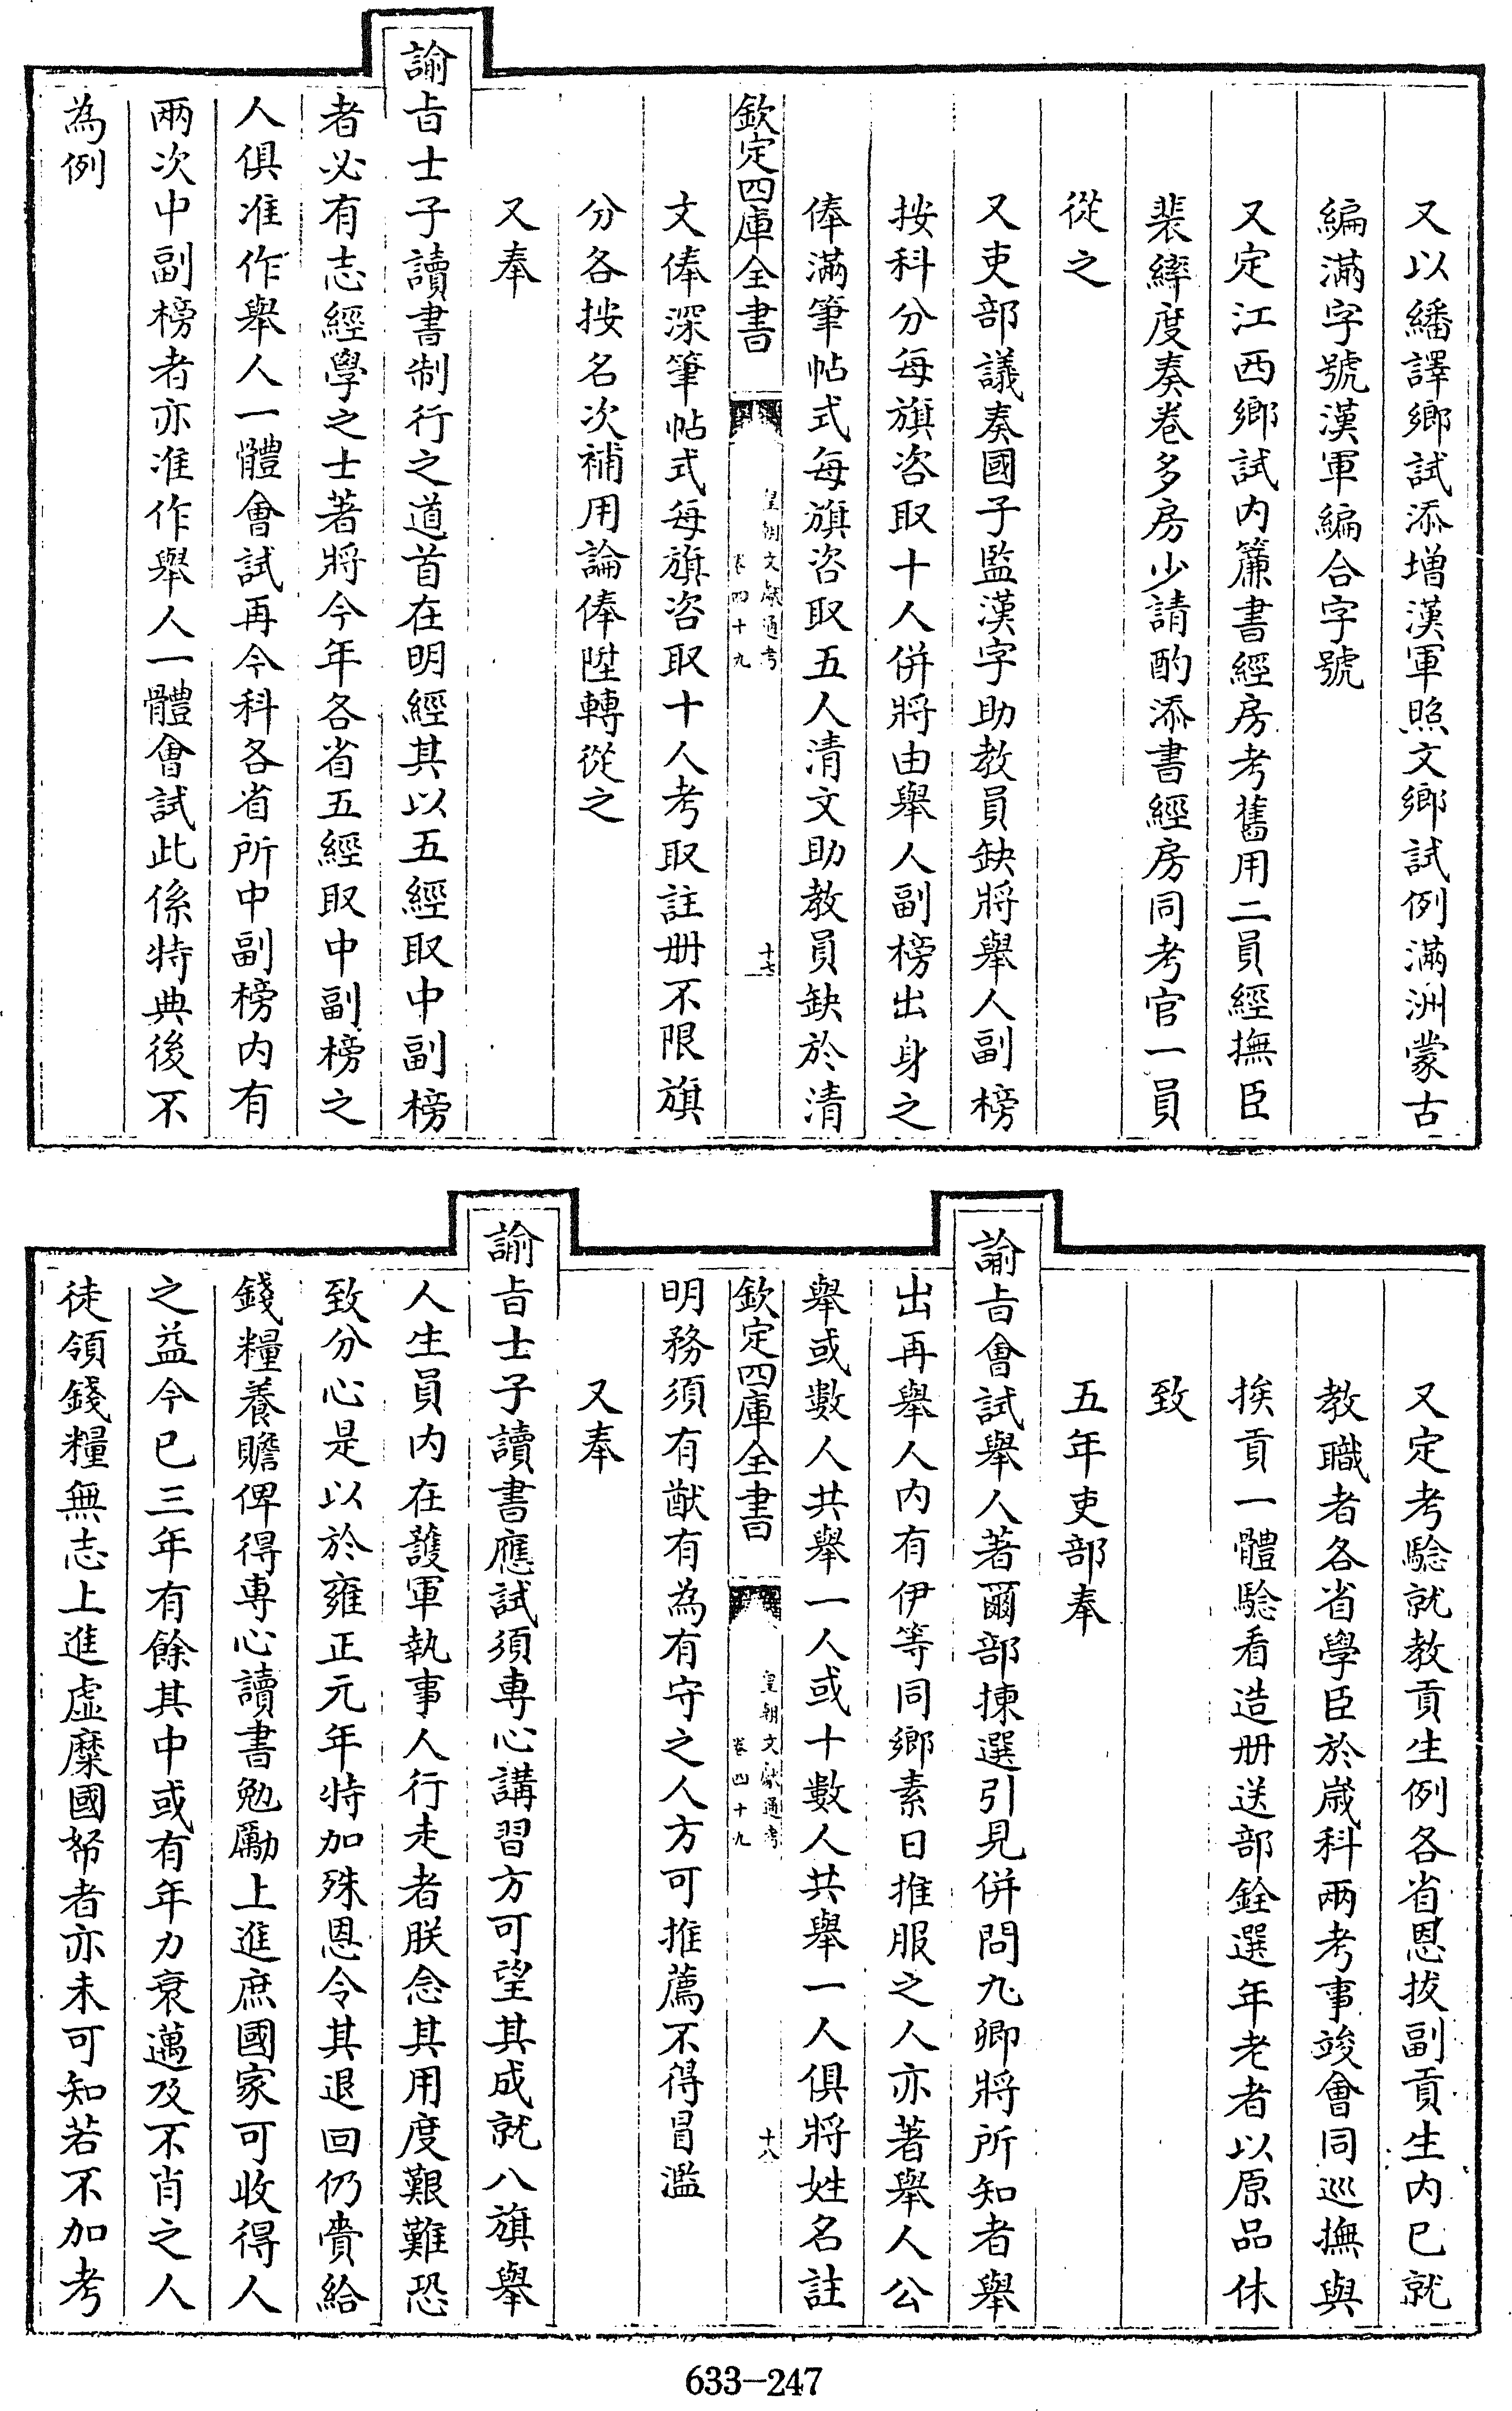 又以繙譯鄉試添增漢軍照文鄉試例滿洲蒙古
編滿字號漢軍編合字號
又定江西鄉試内簾書經房考舊用二員經撫臣
裴𢆡度奏卷多房少請酌添書經房同考官一員
從之
又吏部議奏國子監漢字助教員缺將舉人副榜
按科分每旗咨取十人併將由舉人副榜出身之
俸滿筆帖式每旗咨取五人清文助教員缺於清
欽定四庫全書
皇朝文獻通考
卷四十九
十七
文俸深筆帖式每旗咨取十人考取註冊不限旗
分各按名次補用論俸陞轉從之
又奉
諭旨士子讀書制行之道首在明經其以五經取中副榜
者必有志經學之士著將今年各省五經取中副榜之
人俱准作舉人一體會試再今科各省所中副榜内有
兩次中副榜者亦准作舉人一體會試此係特典後不
為例
又定考驗就教貢生例各省恩拔副貢生内已就
教職者各省學臣於歲科兩考事竣會同巡撫與
挨貢一體驗看造冊送部銓選年老者以原品休
致
五年吏部奉
諭旨會試舉人著爾部揀選引見併問九卿將所知者舉
出再舉人内有伊等同鄉素日推服之人亦著舉人公
舉或數人共舉一人或十數人共舉一人俱將姓名註
欽定四庫全書
皇朝文獻通考
卷四十九
十八
明務須有猷有為有守之人方可推薦不得冒濫
又奉
諭旨士子讀書應試須専心講習方可望其成就八旗舉
人生員内在護軍執事人行走者朕念其用度艱難恐
致分心是以於雍正元年特加殊恩令其退回仍賞給
錢糧養贍俾得専心讀書勉勵上進庶國家可收得人
之益今已三年有餘其中或有年力衰邁及不肖之人
徒領錢糧無志上進虛糜國帑者亦未可知若不加考
633-247